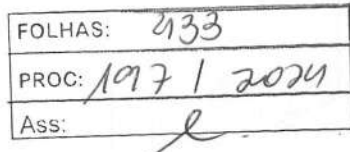 FOLHAS: 433
PROC: 197 / 2024
Ass: